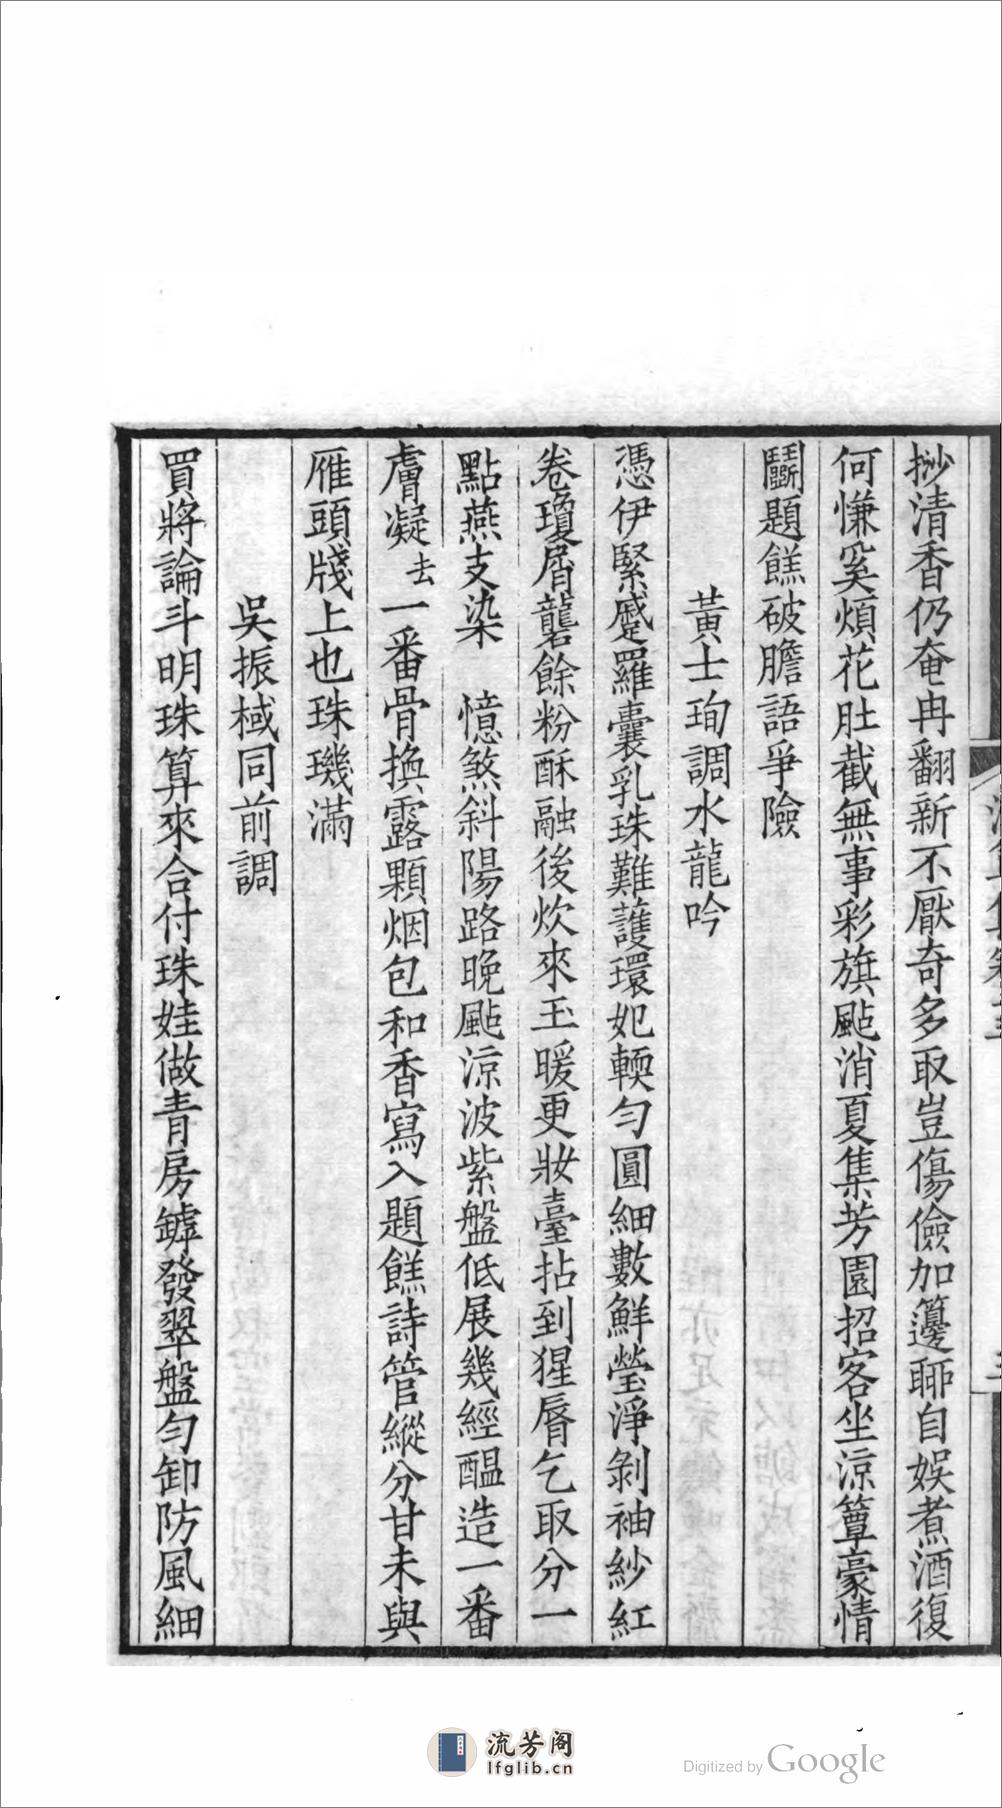 抄清香仍奄冉翻新不厭奇多取豈傷儉加籩聊自娛煮酒復
何慊奚煩花肚截無事彩旗颭消夏集芳園招客坐涼簟豪情
鬬題餻破膽語爭險
黃士珣調水龍吟
憑伊緊蹙羅囊乳珠難護環妃輭勻圓細數鮮瑩淨剝袖紗紅
卷瓊屑礱餘粉酥融後炊來玉暖更妝臺拈到猩脣乞取分一
點燕支染 憶煞斜陽路晚颭涼波紫盤低展幾經醞造一番
膚凝去一番骨換露顆烟包和香寫入題餻詩管縱分甘未與
雁頭牋上也珠璣滿
吳振棫同前調
買將論斗明珠算來合付珠娃做青房罅發翠盤勻卸防風細
流芳阁
lfglib.cn
Digitized by Google